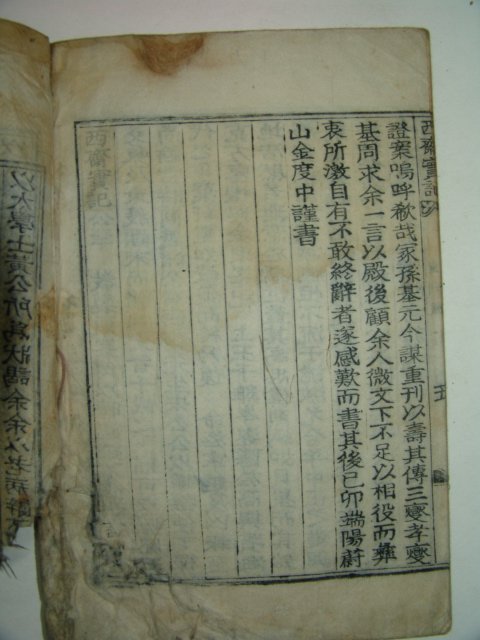 西齋實記 八
證案嗚呼欷哉冢孫基元今謀重刊以壽其傳三燮孝燮
基周求余一言以殿後顧余人微文下不足以相役而彝
衷所激自有不敢終辭者遂感歎而書其後己卯端陽蔚
山金度中謹書
五
以太學士黃公所爲狀謁余余以老病辭